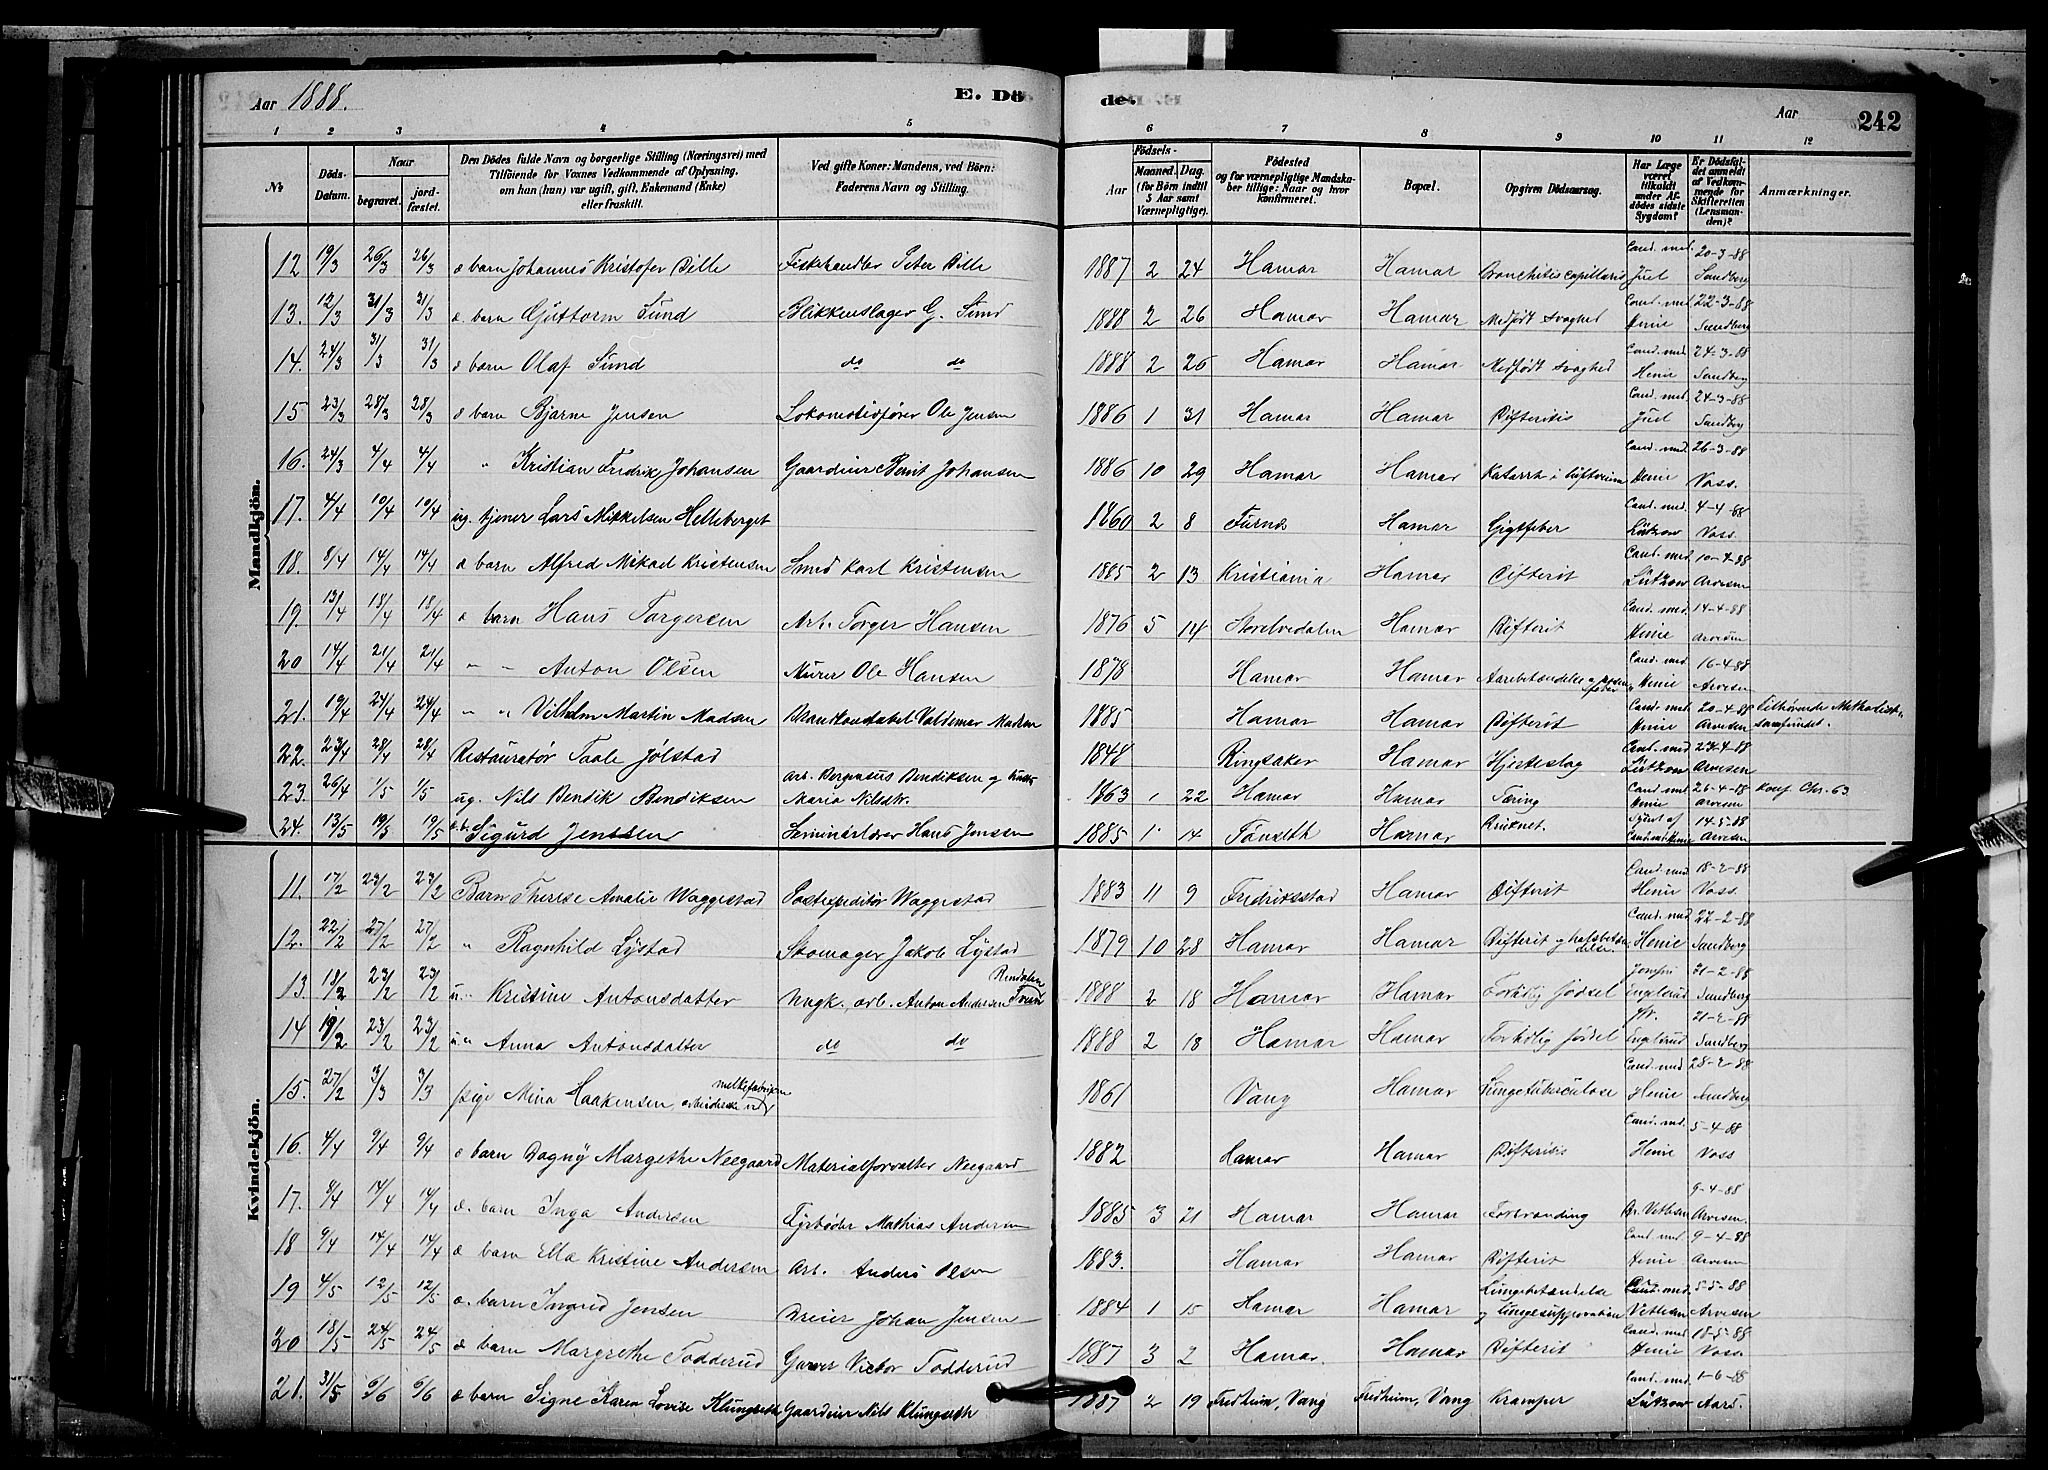 Aar 1888. E. Dö de. Aar 242
1 2 3 4 5 6 7 8 9 10 11 12
No Döds-Datum. Naar begravet. jordfæstet. Den Dödes fulde Navn og borgerlige Stilling (Næringsvei) med Tilföiende for Voxnes Vedkommende af Oplysning, om han (hun) var ugift, gift, Enkemand (Enke) eller fraskilt. Ved gifte Koner: Mandens, ved Börn: Faderens Navn og Stilling. Födsels- Aar Maaned. Dag. (for Börn indtil 5 Aar samt Værnepligtige). Födested og for værnepligtige Mandskaber tillige: Naar og hvor konfirmeret. Bopæl. Opgiven Dödsaarsag. Har Læge været tilkaldt under Afdödes sidste Sygdom? Er Dödsfaldet anmeldt af Vedkommende for Skifteretten (Lensmanden)? Anmærkninger.
Mandkjön.
12 19/3 26/3 26/3 æ barn Johannes Kristofer Bille Fiskehandler Peter Bille 1887 2 24 Hamar Hamar Bronchitis capillaris Cand. med. Juel 20-3-88 Sandberg
13. 12/3 31/3 31/3 æ. barn Guttorm Sund Blikkenslager G. Sund 1888 2 26 Hamar Hamar Medfödt svaghed Cand. med Henie 22-3-88 Sandberg
14. 24/3 31/3 31/3 æ barn Olaf Sund do do 1888 2 26 Hamar Hamar Medfödt svaghed Cand. med Henie 24-3-88 Sandberg
15 23/3 28/3 28/3 æ barn Bjarne Jensen Lokomotivfører Ole Jensen 1886 1 31 Hamar Hamar Difteritis Cand. med Juel 24-3-88 Sandberg
16. 24/3 4/4 4/4 " Kristian Fredrik Johansen Gaardeier Bernt Johansen 1886 10 29 Hamar Hamar Katarrh i luftveiene Cand. med Henie 26-3-88 Voss.
17. 4/4 10/4 10/4 ug. tjener Lars Mikkelsen Helleberget 1860 2 8 Furnes Hamar Gigtfeber Cand. med Lütkow 4-4-88 Voss.
18. 8/4 14/4 14/4 æ barn Alfred Mikael Kristensen Smed Karl Kristensen 1885 2 13 Kristiania Hamar Difterit Cand. med Lütkow 10-4-88 Arvesen
19. 13/4 18/4 18/4 æ barn Hans Torgersen Arb. Torger Hansen 1876 5 14 Storelvedalen Hamar Difterit Cand. med. Henie 14-4-88 Arvesen
20 14/4 21/4 21/4 " " Anton Olsen Murer Ole Hansen 1878 Hamar Hamar Cand. med Henie 16-4-88 Arvesen
21. 19/4 24/4 24/4 " " Vilhelm Martin Madsen Brandkonstabel Valdemar Madsen 1885 Hamar Hamar Difterit Cand. med Henie 20-4-88 Arvesen Tilhørende Methodistsamfundet.
22. 23/4 28/4 28/4 Restauratør Taale Jølstad 1848 Ringsaker Hamar Hjerteslag Cand. med Lütkow 24-4-88 Arvesen
23. 26/4 1/5 1/5 ug. Nils Bendik Bendiksen Arb. Bergensius Bendiksen og Hustru Maria Nilsdtr. 1863 1 22 Hamar Hamar Tæring Cand. med Henie 26-4-88 Arvesen Konf. Chr. 63
24. 13/5 19/5 19/5 æ. b. Sigurd Jenssen Seminarlærer Hans Jenssen 1885 1 14 Tönseth Hamar Druknet. Synet af Cand. med Henie 14-5-88 Arvesen
Kvindekjön.
11. 17/2 23/2 23/2 Barn Therese Amalie Waggestad Postexpeditör Waggestad 1883 11 9 Fredriksstad Hamar Difterit Cand. med Henie 18-2-88 Voss
12. 22/2 27/2 27/2 " Ragnhild Lystad Skomager Jakob Lystad 1879 10 28 Hamar Hamar Difterit og halsbetændelse. Cand. med Henie 22-2-88 Sandberg
13. 18/2 23/2 23/2 u." Kristine Antonsdatter Ungk., arb. Anton Andersen Rendalen 1888 2 18 Hamar Hamar Fortidlig födsel Jomfru Engelrud 21-2-88 Sandberg
14 19/2 23/2 23/2 u." Anna Antonsdatter do do 1888 2 18 Hamar Hamar Fortidlig födsel Jfr. Engelrud 21-2-88 Sandberg
15. 27/2 3/3 3/3 pige Mina Haakensen, arbeiderske ved melkefabriken 1861 Vang Hamar Lungetuberculose Cand. med Henie 28-2-88 Sandberg
16. 4/4 9/4 9/4 æ barn Dagny Margethe Neegaard Materialforvalter Neegaard 1882 Hamar Hamar Difteritis Cand. med. Henie 5-4-88 Voss
17. 8/4 14/4 14/4 æ. barn Inga Andersen Fyrböder Mathias Andersen 1885 3 21 Hamar Hamar Forbrænding Dr. Vetlesen 9-4-88 Arvesen.
18 9/4 14/4 14/4 æ barn Ella Kristine Andersen Arb. Anders Olsen 1883. Hamar Hamar Difterit Cand. med. Henie 9-4-88 Arvesen
19 4/5 12/5 12/5 æ. barn Ingrid Jensen Dreier Johan Jensen 1884 1 15 Hamar Hamar Lungebetændelse og lungesuppuration Cand. med Vetlesen 5-5-88 Arvesen
20 18/5 24/5 24/5 æ barn Margrethe Todderud Garver Victor Todderud 1887 3 2 Hamar. Hamar Difterit Cand. med. Henie 18-5-88 Voss
21. 31/5 6/6 6/6 æ barn Signe Karen Lovise Klungseth Gaardeier Nils Klungseth 1887 2 19 Fredheim, Vang Fredheim, Vang Kramper Cand. med Lütkow 1-6-88 Aars.